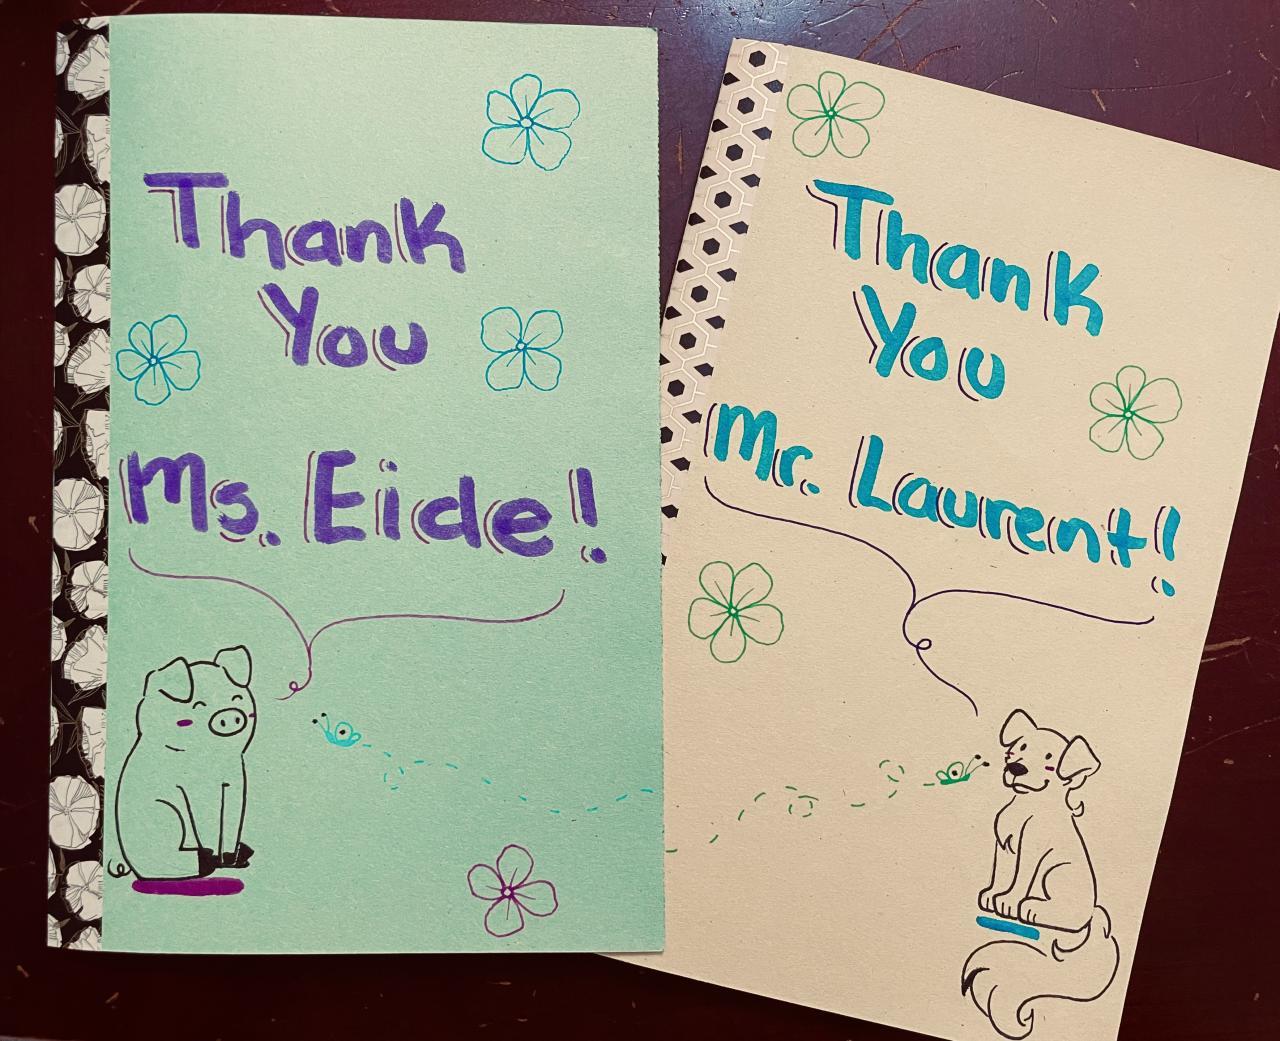 Thank
You
Ms. Eide!
Thank
You
Mr. Laurent!